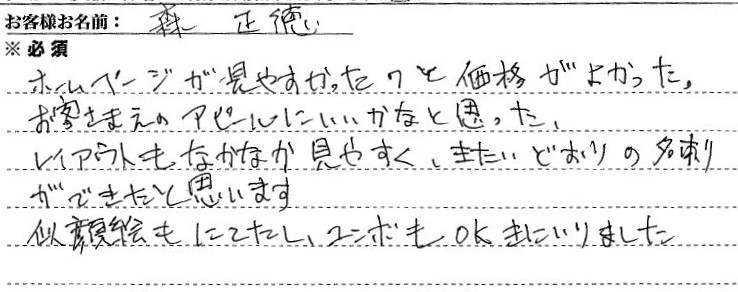 お客様お名前： 森 正徳
※必須
ホームページが見やすかったのと価格がよかった。
お客さまえのアピールにいいかなと思った、
レイアウトもなかなか見やすく、きたいどおりの名刺
ができたと思います
似顔絵もにてたし、ユンボもOKきにいりました